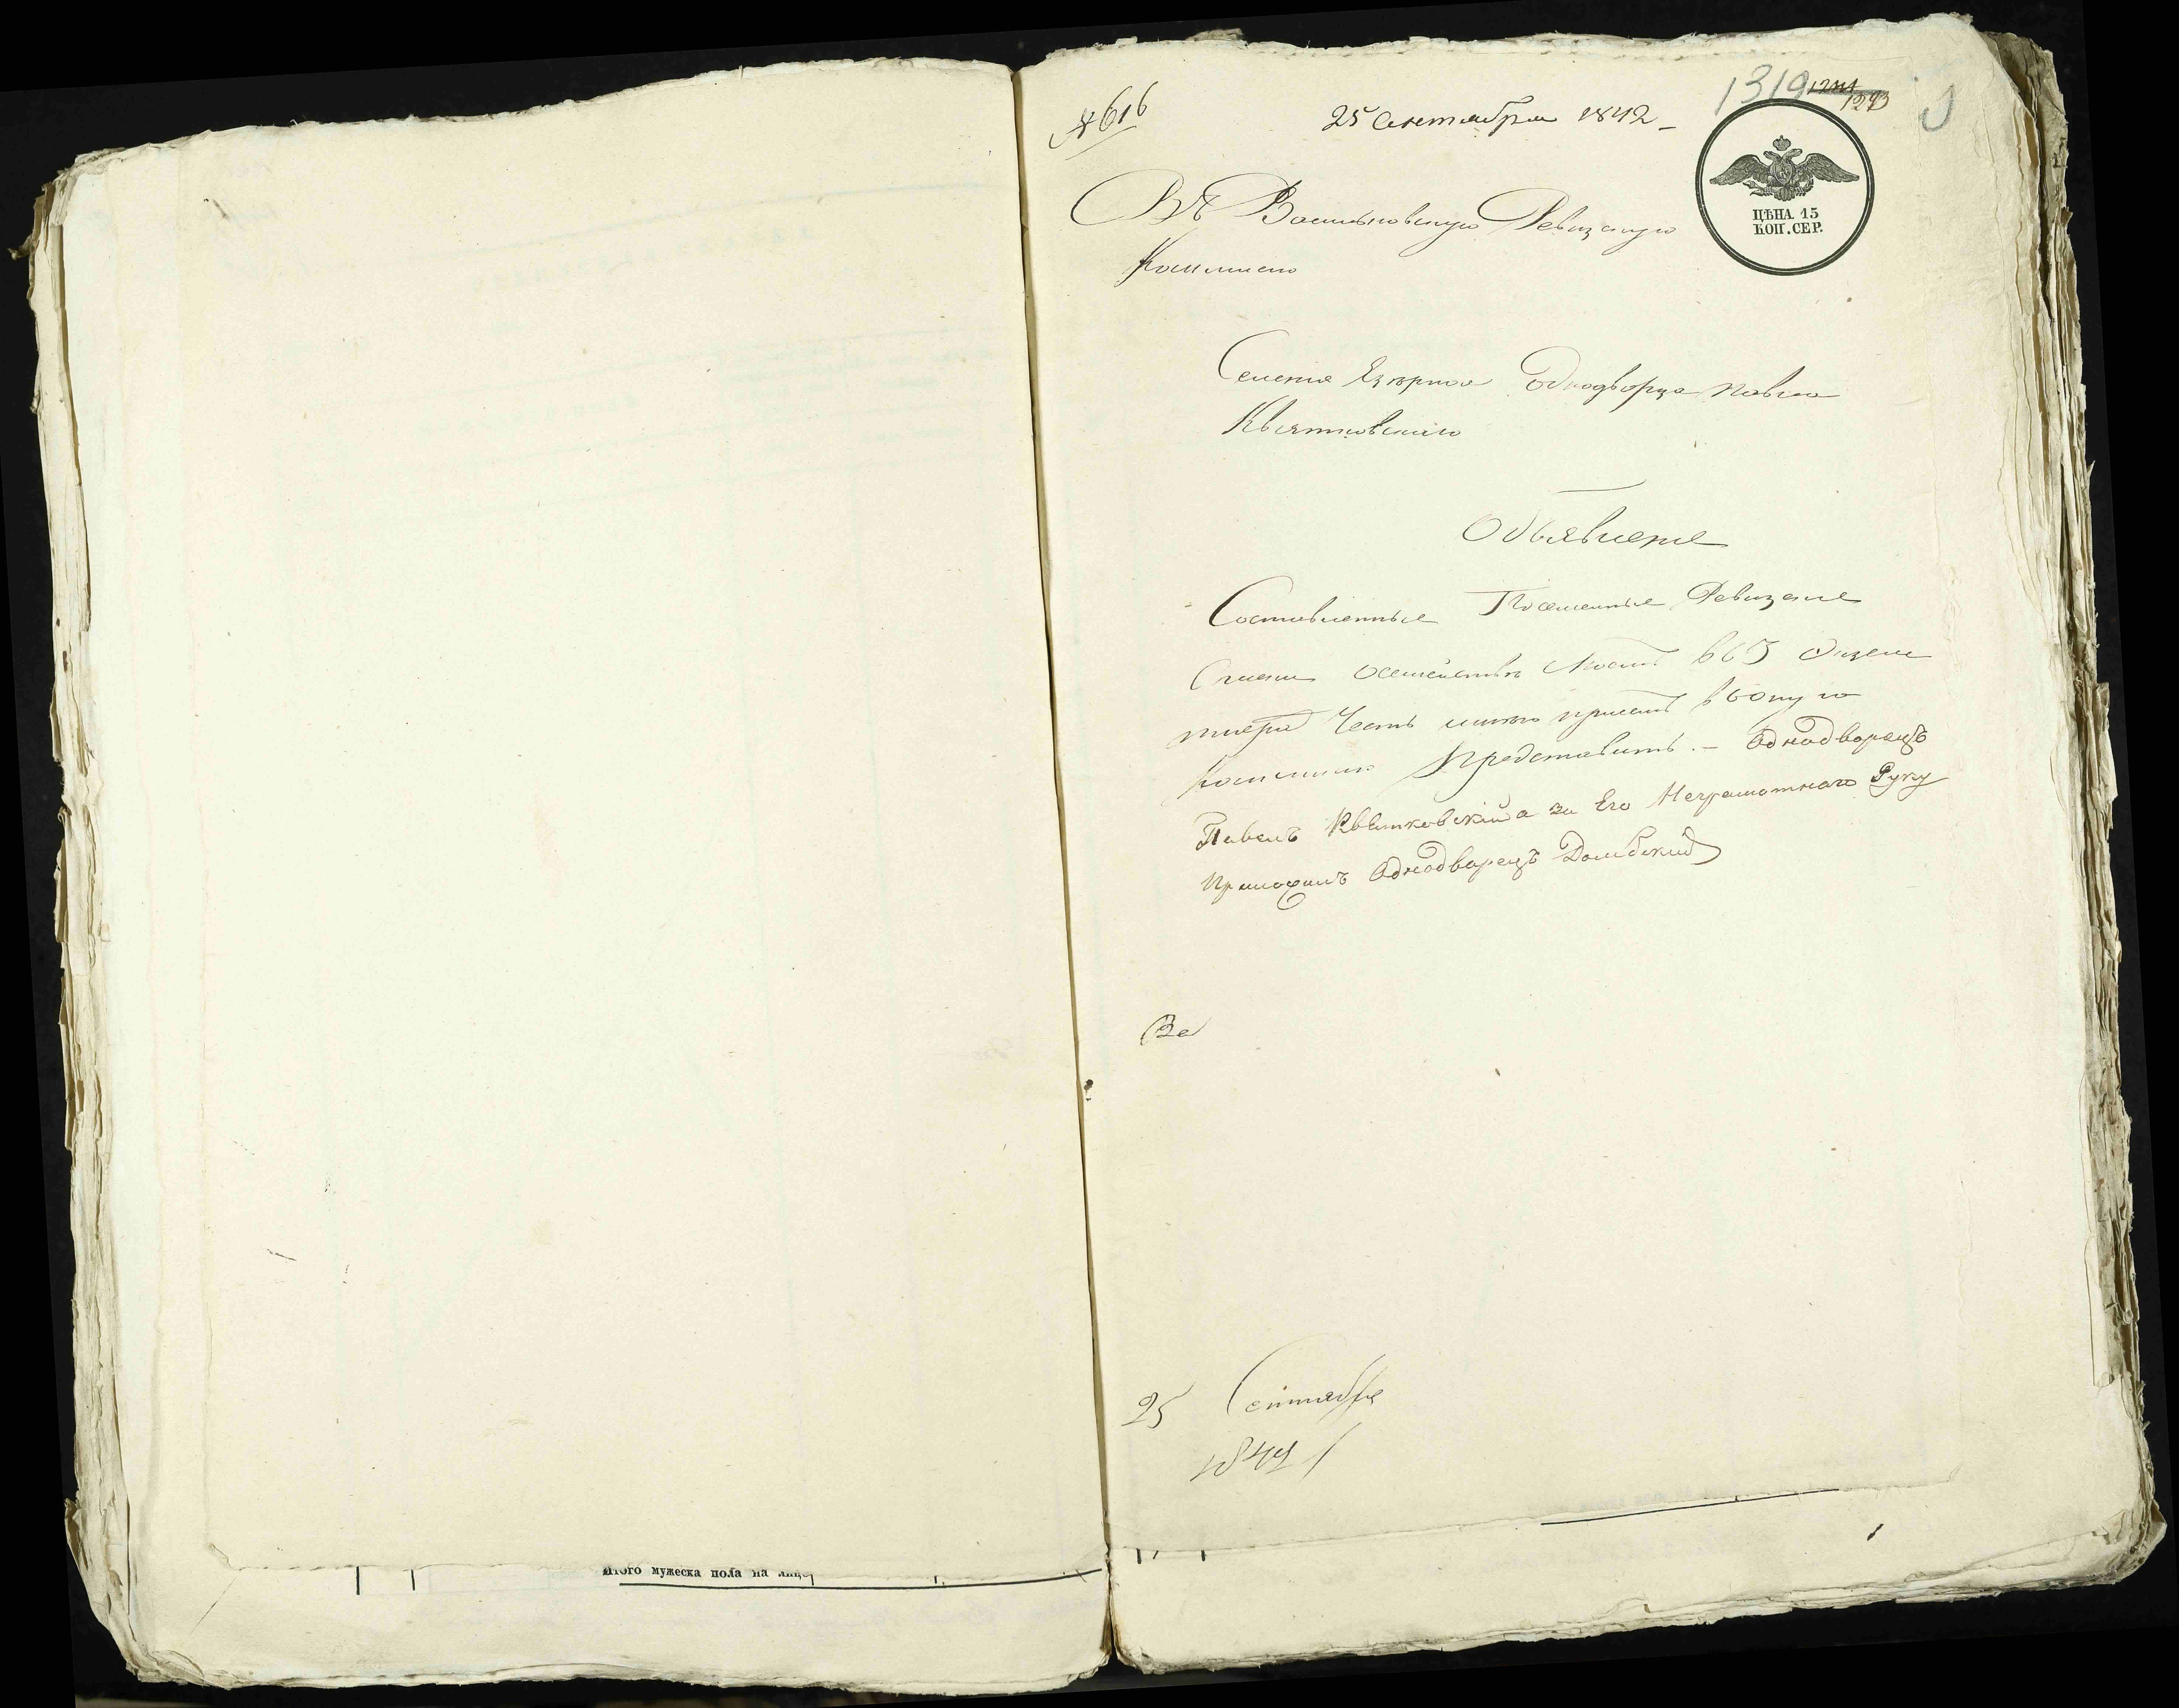 № 616
25 Сентября 1842 –
1319
1293
ЦѢНА 15
КОП. СЕР.
Въ Васильковскую Ревизскую
Комисию
Селения Езерной Однодворца Павла
Квятковскаго
Объявление
Составленные Посемейные Ревизские
Сказки о семействе моем въ 5
теперь Честь имею при сем въ оную
Комисию Представить. – Однодворецъ
Павелъ Квятковский а за Его Неграмотнаго Руку
Приложилъ Однодворецъ Домбский
За
25 Сентября
1842
Итого мужеска пола на лице